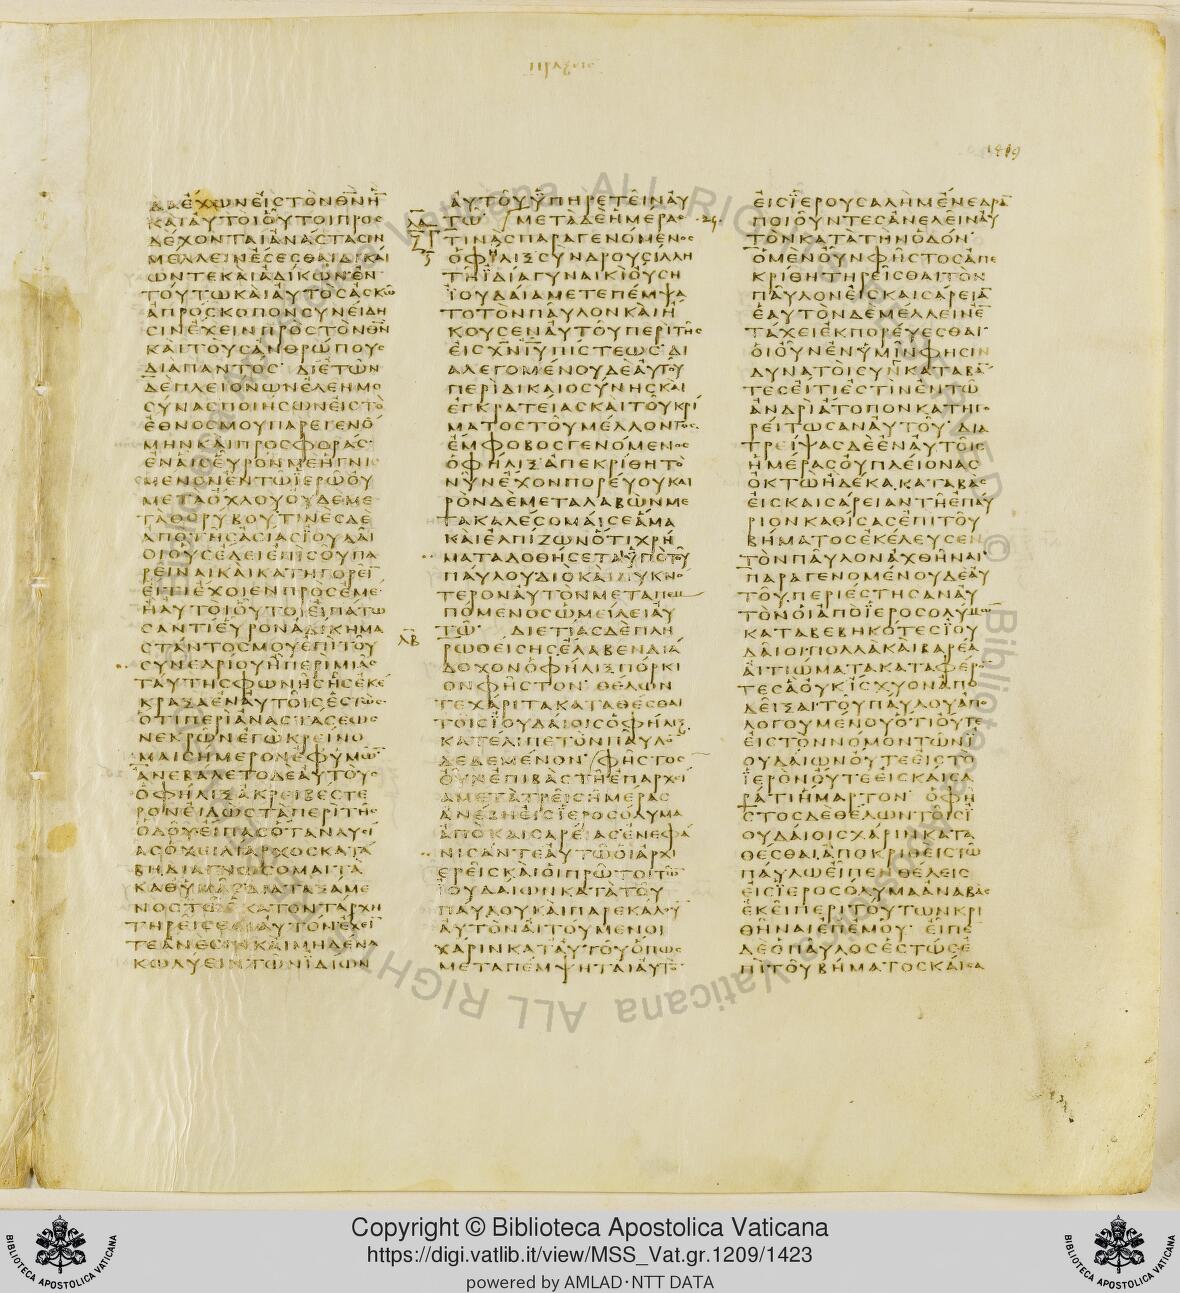 Πράξεις
1419
ΔΑΕΧΩΝΕΙΣΤΟΝΘΝΗ
ΚΑΙΑΥΤΟΙΟΥΤΟΙΠΡΟΣ
ΔΕΧΟΝΤΑΙΑΝΑΣΤΑΣΙΝ
ΜΕΛΛΕΙΝΕΣΕΣΘΑΙΔΙΚΑΙ
ΩΝΤΕΚΑΙΑΔΙΚΩΝ·ΕΝ
ΤΟΥΤΩΚΑΙΑΥΤΟΣΑΣΚΩ
ΑΠΡΟΣΚΟΠΟΝΣΥΝΕΙΔΗ
ΣΙΝΕΧΕΙΝΠΡΟΣΤΟΝΘΝ
ΚΑΙΤΟΥΣΑΝΘΡΩΠΟΥΣ
ΔΙΑΠΑΝΤΟΣ· ΔΙΕΤΩΝ
ΔΕΠΛΕΙΟΝΩΝΕΛΕΗΜΟ
ΣΥΝΑΣΠΟΙΗΣΩΝΕΙΣΤΟ
ΕΘΝΟΣΜΟΥΠΑΡΕΓΕΝΟ
ΜΗΝΚΑΙΠΡΟΣΦΟΡΑΣ·
ΕΝΑΙΣΕΥΡΟΝΜΕΗΓΝΙΣ
ΜΕΝΟΝΕΝΤΩΙΕΡΩΟΥ
ΜΕΤΑΟΧΛΟΥΟΥΔΕΜΕ
ΤΑΘΟΡΥΒΟΥ·ΤΙΝΕΣΔΕ
ΑΠΟΤΗΣΑΣΙΑΣΙΟΥΔΑΙ
ΟΙΟΥΣΕΔΕΙΕΠΙΣΟΥΠΑ
ΡΕΙΝΑΙΚΑΙΚΑΤΗΓΟΡΕΙ
ΕΙΤΙΕΧΟΙΕΝΠΡΟΣΕΜΕ·
ΗΑΥΤΟΙΟΥΤΟΙΕΙΠΑΤΩ
ΣΑΝΤΙΕΥΡΟΝΑΔΙΚΗΜΑ
ΣΤΑΝΤΟΣΜΟΥΕΠΙΤΟΥ
ΣΥΝΕΔΡΙΟΥΗΠΕΡΙΜΙΑΣ
ΤΑΥΤΗΣΦΩΝΗΣΗΣΕΚΕ
ΚΡΑΞΑΕΝΑΥΤΟΙΣΕΣΤΩΣ·
ΟΤΙΠΕΡΙΑΝΑΣΤΑΣΕΩΣ
ΝΕΚΡΩΝΕΓΩΚΡΕΙΝΟ
ΜΑΙΣΗΜΕΡΟΝΕΦΥΜΩ
ΑΝΕΒΑΛΕΤΟΔΕΑΥΤΟΥΣ
ΟΦΗΛΙΞΑΚΡΕΙΒΕΣΤΕ
ΡΟΝΕΙΔΩΣΤΑΠΕΡΙΤΗΣ
ΟΔΟΥ·ΕΙΠΑΣΟΤΑΝΛΥΣΙ
ΑΣΟΧΕΙΛΙΑΡΧΟΣΚΑΤΑ
ΒΗΔΙΑΓΝΩΣΟΜΑΙΤΑ
ΚΑΘΥΜΑΣΔΙΑΤΑΞΑΜΕ
ΝΟΣΤΩΕΚΑΤΟΝΤΑΡΧΗ
ΤΗΡΕΙΣΘΑΙΑΥΤΟΝΕΧΕΙ
ΤΕΑΝΕΣΙΝΚΑΙΜΗΔΕΝΑ
ΚΩΛΥΕΙΝΤΩΝΙΔΙΩΝ
ΑΥΤΟΥΥΠΗΡΕΤΕΙΝΑΥ
ΛΑ ΤΩ· ΜΕΤΑΔΕΗΜΕΡΑΣ ·24·
ΤΙΝΑΣΠΑΡΑΓΕΝΟΜΕΝΟΣ
ΟΦΗΛΙΞΣΥΝΔΡΟΥΣΙΛΛΗ
ΤΗΙΔΙΑΓΥΝΑΙΚΙΟΥΣΗ
ΙΟΥΔΑΙΑΜΕΤΕΠΕΜΨΑ
ΤΟΤΟΝΠΑΥΛΟΝΚΑΙΗ
ΚΟΥΣΕΝΑΥΤΟΥΠΕΡΙΤΗΣ
ΕΙΣΧΝΙΥΠΙΣΤΕΩΣ·ΔΙ
ΑΛΕΓΟΜΕΝΟΥΔΕΑΥΤΟΥ
ΠΕΡΙΔΙΚΑΙΟΣΥΝΗΣΚΑΙ
ΕΓΚΡΑΤΕΙΑΣΚΑΙΤΟΥΚΡΙ
ΜΑΤΟΣΤΟΥΜΕΛΛΟΝΤΟΣ·
ΕΜΦΟΒΟΣΓΕΝΟΜΕΝΟΣ
ΟΦΗΛΙΞΑΠΕΚΡΙΘΗΤΟ
ΝΥΝΕΧΟΝΠΟΡΕΥΟΥΚΑΙ
ΡΟΝΔΕΜΕΤΑΛΑΒΩΝΜΕ
ΤΑΚΑΛΕΣΟΜΑΙΣΕΑΜΑ
ΚΑΙΕΛΠΙΖΩΝΟΤΙΧΡΗ
ΜΑΤΑΔΟΘΗΣΕΤΑΥΠΟΤΟΥ
ΠΑΥΛΟΥΔΙΟΚΑΙΠΥΚΝΟ
ΤΕΡΟΝΑΥΤΟΝΜΕΤΑΠΕΜ
ΠΟΜΕΝΟΣΩΜΕΙΛΕΙΑΥ
ΛΒ ΤΩ· ΔΙΕΤΙΑΣΔΕΠΛΗ
ΡΩΘΕΙΣΗΣΕΛΑΒΕΝΔΙΑ
ΔΟΧΟΝΟΦΗΛΙΞΠΟΡΚΙ
ΟΝΦΗΣΤΟΝ· ΘΕΛΩΝ
ΤΕΧΑΡΙΤΑΚΑΤΑΘΕΣΘΑΙ
ΤΟΙΣΙΟΥΔΑΙΟΙΣΟΦΗΛΙΞ
ΚΑΤΕΛΙΠΕΤΟΝΠΑΥΛΟ
ΔΕΔΕΜΕΝΟΝ· ΦΗΣΤΟΣ
ΟΥΝΕΠΙΒΑΣΤΗΕΠΑΡΧΕΙ
ΑΜΕΤΑΤΡΕΙΣΗΜΕΡΑΣ
ΑΝΕΒΗΕΙΣΙΕΡΟΣΟΛΥΜΑ
ΑΠΟΚΑΙΣΑΡΕΙΑΣΕΝΕΦΑ
ΝΙΣΑΝΤΕΑΥΤΩΟΙΑΡΧΙ
ΕΡΕΙΣΚΑΙΟΙΠΡΩΤΟΙΤΩ
ΙΟΥΔΑΙΩΝΚΑΤΑΤΟΥ
ΠΑΥΛΟΥΚΑΙΠΑΡΕΚΑΛΟΥ
ΑΥΤΟΝΑΙΤΟΥΜΕΝΟΙ
ΧΑΡΙΝΚΑΤΑΥΤΟΥΟΠΩΣ
ΜΕΤΑΠΕΜΨΗΤΑΙΑΥΤΟ
ΕΙΣΙΕΡΟΥΣΑΛΗΜΕΝΕΔΡΑ
ΠΟΙΟΥΝΤΕΣΑΝΕΛΕΙΝΑΥ
ΤΟΝΚΑΤΑΤΗΝΟΔΟΝ·
ΟΜΕΝΟΥΝΦΗΣΤΟΣΑΠΕ
ΚΡΙΘΗΤΗΡΕΙΣΘΑΙΤΟΝ
ΠΑΥΛΟΝΕΙΣΚΑΙΣΑΡΕΙΑ
ΕΑΥΤΟΝΔΕΜΕΛΛΕΙΝΕ
ΤΑΧΕΙΕΚΠΟΡΕΥΕΣΘΑΙ·
ΟΙΟΥΝΕΝΥΜΙΝΦΗΣΙΝ
ΔΥΝΑΤΟΙΣΥΝΚΑΤΑΒΑ
ΤΕΣΕΙΤΙΕΣΤΙΝΕΝΤΩ
ΑΝΔΡΙΑΤΟΠΟΝΚΑΤΗΓΟ
ΡΕΙΤΩΣΑΝΑΥΤΟΥ· ΔΙΑ
ΤΡΕΙΨΑΣΔΕΕΝΑΥΤΟΙΣ
ΗΜΕΡΑΣΟΥΠΛΕΙΟΝΑΣ
ΟΚΤΩΗΔΕΚΑ·ΚΑΤΑΒΑΣ
ΕΙΣΚΑΙΣΑΡΕΙΑΝΤΗΕΠΑΥ
ΡΙΟΝΚΑΘΙΣΑΣΕΠΙΤΟΥ
ΒΗΜΑΤΟΣΕΚΕΛΕΥΣΕΝ
ΤΟΝΠΑΥΛΟΝΑΧΘΗΝΑΙ·
ΠΑΡΑΓΕΝΟΜΕΝΟΥΔΕΑΥ
ΤΟΥ·ΠΕΡΙΕΣΤΗΣΑΝΑΥ
ΤΟΝΟΙΑΠΟΙΕΡΟΣΟΛΥΜΩ
ΚΑΤΑΒΕΒΗΚΟΤΕΣΙΟΥ
ΔΑΙΟΙ·ΠΟΛΛΑΚΑΙΒΑΡΕΑ
ΑΙΤΙΩΜΑΤΑΚΑΤΑΦΕΡΟ
ΤΕΣΑΟΥΚΙΣΧΥΟΝΑΠΟ
ΔΕΙΞΑΙ·ΤΟΥΠΑΥΛΟΥΑΠΟ
ΛΟΓΟΥΜΕΝΟΥΟΤΙΟΥΤΕ
ΕΙΣΤΟΝΝΟΜΟΝΤΩΝΙ
ΟΥΔΑΙΩΝΟΥΤΕΕΙΣΤΟ
ΙΕΡΟΝΟΥΤΕΕΙΣΚΑΙΣΑ
ΡΑΤΙΗΜΑΡΤΟΝ· ΟΦΗ
ΣΤΟΣΔΕΘΕΛΩΝΤΟΙΣΙ
ΟΥΔΑΙΟΙΣΧΑΡΙΝΚΑΤΑ
ΘΕΣΘΑΙ,ΑΠΟΚΡΙΘΕΙΣΤΩ
ΠΑΥΛΩΕΙΠΕΝΘΕΛΕΙΣ
ΕΙΣΙΕΡΟΣΟΛΥΜΑΑΝΑΒΑΣ
ΕΚΕΙΠΕΡΙΤΟΥΤΩΝΚΡΙ
ΘΗΝΑΙΕΠΕΜΟΥ· ΕΙΠΕ
ΔΕΟΠΑΥΛΟΣΕΣΤΩΣΕ
ΠΙΤΟΥΒΗΜΑΤΟΣΚΑΙΣΑ
Copyright © Biblioteca Apostolica Vaticana
https://digi.vatlib.it/view/MSS_Vat.gr.1209/1423
powered by AMLAD·NTT DATA